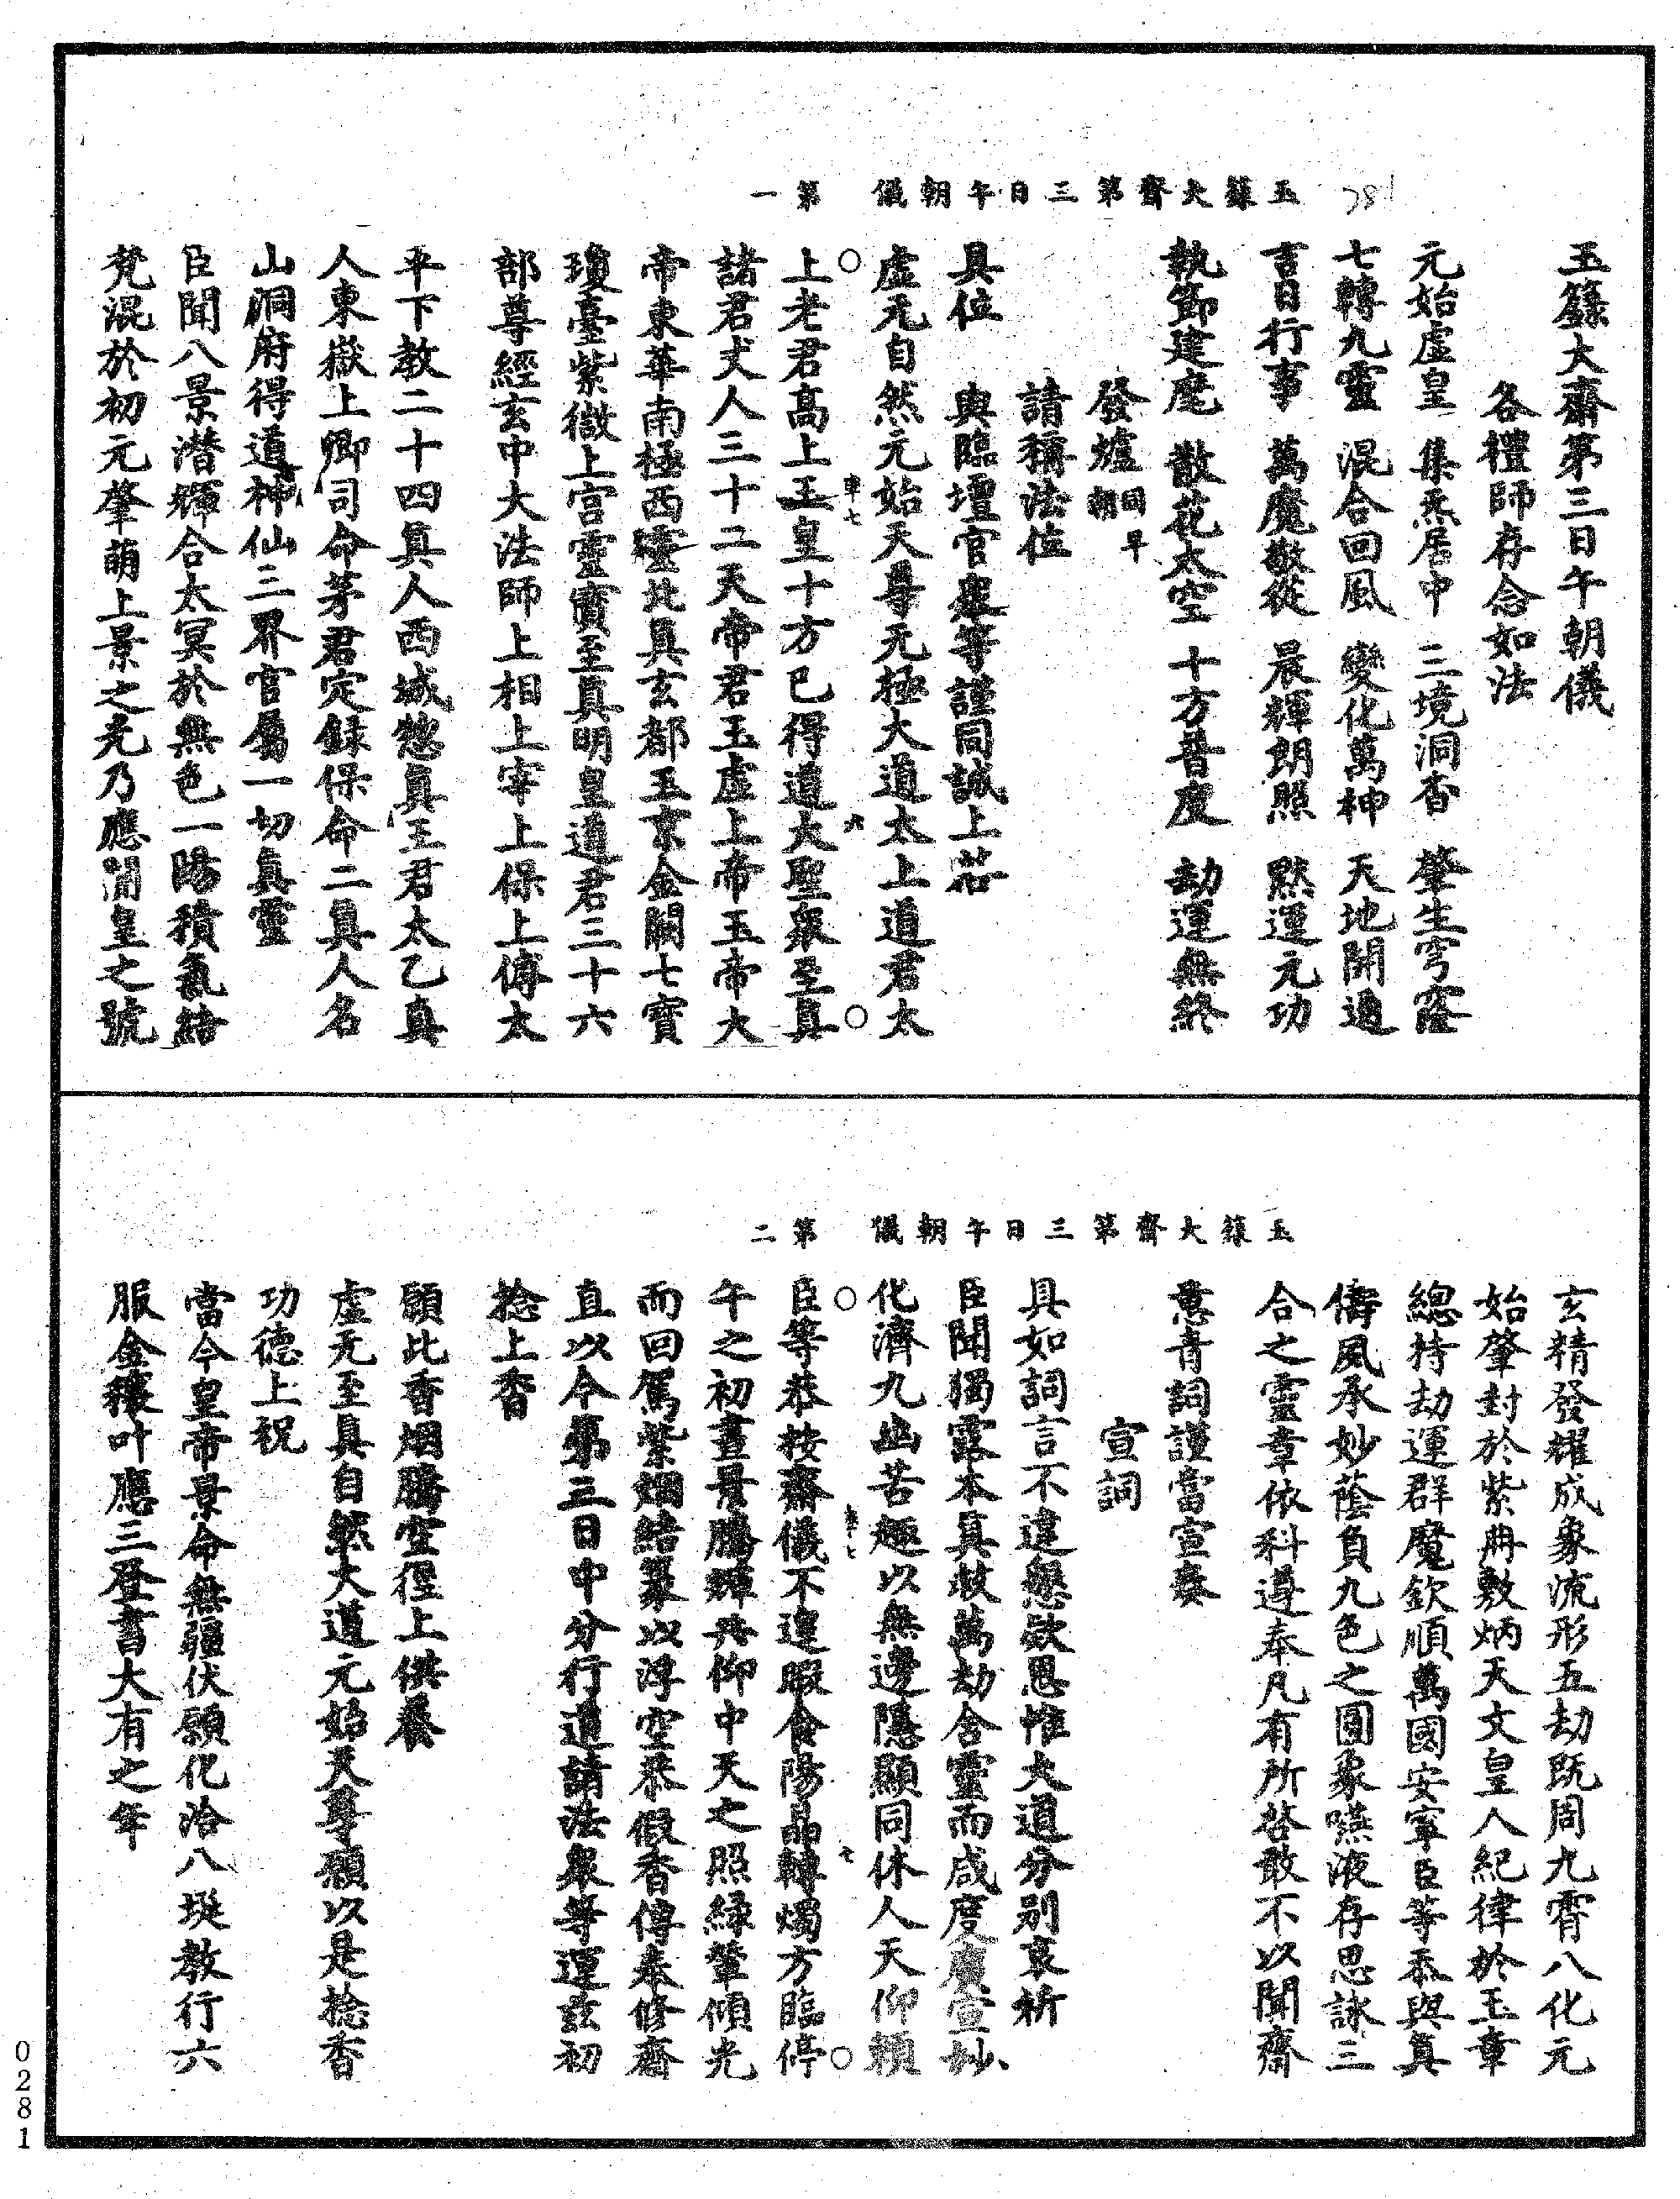 玉籙大齋第三日午朝儀　第一
玉籙大齋第三日午朝儀
各禮師存念如法
元始虛皇　集炁居中　三境洞杳　肇生穹窿
七轉九靈　混合回風　變化萬神　天地開通
吉日行事　萬魔敬從　晨輝朗照　默運元功
執節建麾　散花太空　十方普度　劫運無終
發爐同早朝
請稱法位
具位　與臨壇官衆等謹同誠上啓
虛无自然元始天尊元極大道太上道君太
上老君高上玉皇十方已得道大聖衆至真
諸君丈人三十二天帝君玉虛上帝玉帝大
帝東華南極西靈北真玄都玉京金闕七寶
瓊臺紫微上宮靈寶至真明皇道君三十六
部尊經玄中大法師上相上宰上保上傅太
平下教二十四真人西城總真王君太乙真
人東嶽上卿司命茅君定錄保命二真人名
山洞府得道神仙三界官屬一切真靈
臣聞八景潛輝合太冥於無色一陽積氣結
梵混於初元肇萌上景之先乃應開皇之號
玉籙大齋第三日午朝儀　第二
玄精發耀成象流形五劫既周九霄八化元
始肇封於紫冊敷炳天文皇人紀律於玉章
總持劫運群魔欽順萬國安寧臣等忝與真
儔夙承妙蔭負九色之圓象嚥液存思詠三
合之靈章依科遵奉凡有所啓敢不以聞齋
意青詞謹當宣奏
宣詞
具如詞言不違懇欵思惟大道分別哀祈
臣聞獨露本真歧萬劫含靈而咸度廣宣妙
化濟九幽苦趣以無邊隱顯同休人天仰賴
臣等恭按齋儀不遑暇食陽晶轉燭方臨停
午之初晝景騰輝共仰中天之照綠輦傾光
而回駕紫烟結篆以浮空恭假香傳奉修齋
直以今第三日中分行道請法衆等運玆初
捻上香
願此香烟騰空徑上供養
虛无至真自然大道元始天尊願以是捻香
功德上祝
當今皇帝景命無疆伏願化洽八埏教行六
服金穰叶應三登書大有之年
0281